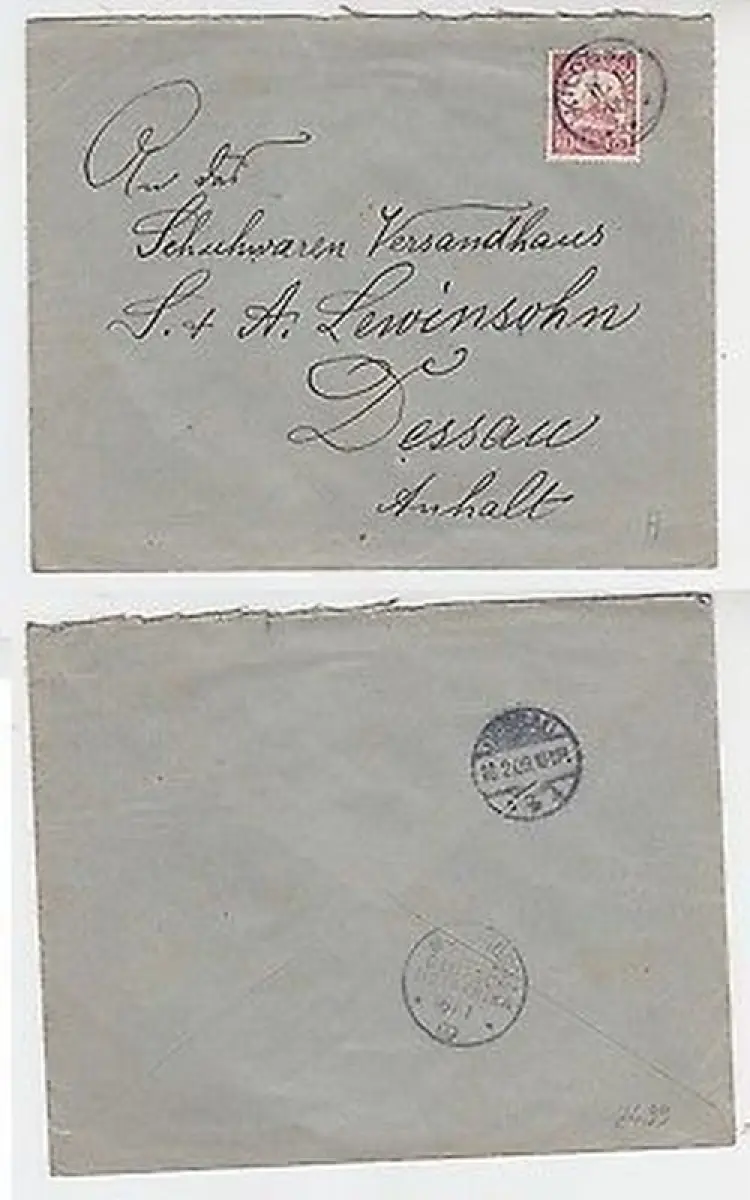 An das
Schuhwaren Versandhaus
S. & A. Lewinsohn
Dessau
Anhalt
H
DESSAU
10.2.09